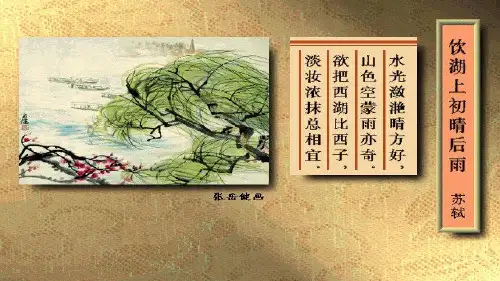 饮湖上初晴后雨
苏轼
水光潋滟晴方好，
山色空蒙雨亦奇。
欲把西湖比西子，
淡妆浓抹总相宜．
张岳健画